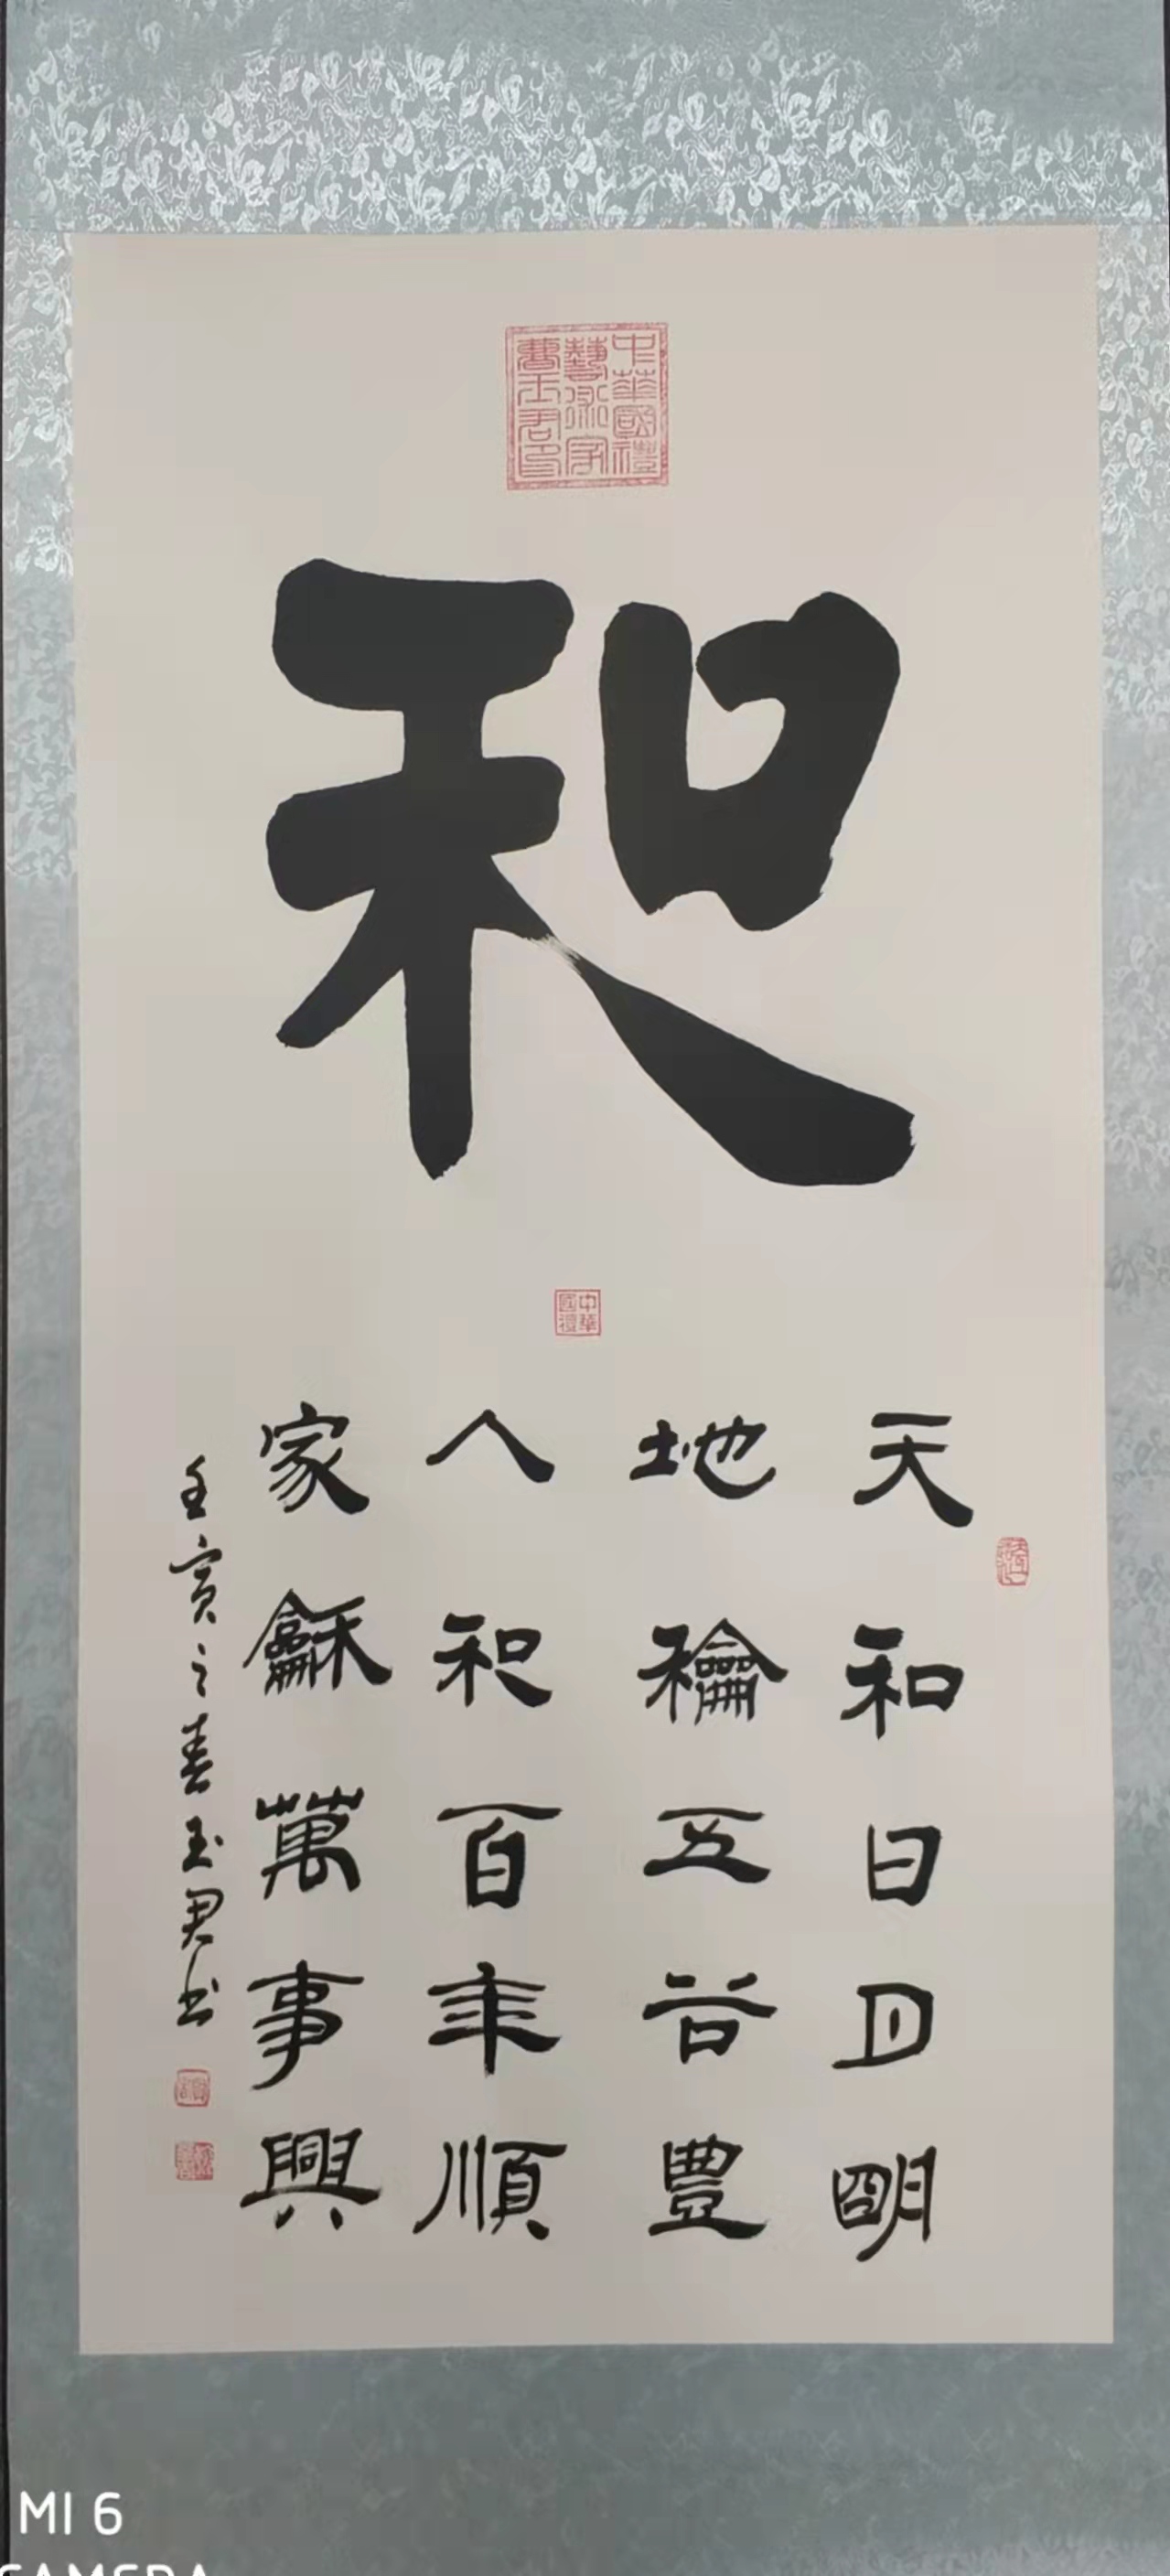 中華國禮
藝術家
曹玉君印
和
中華
國禮
天和日月明
地龢五谷豐
人和百年順
家龢萬事興
壬寅之春玉君书
MI 6
CAMERA